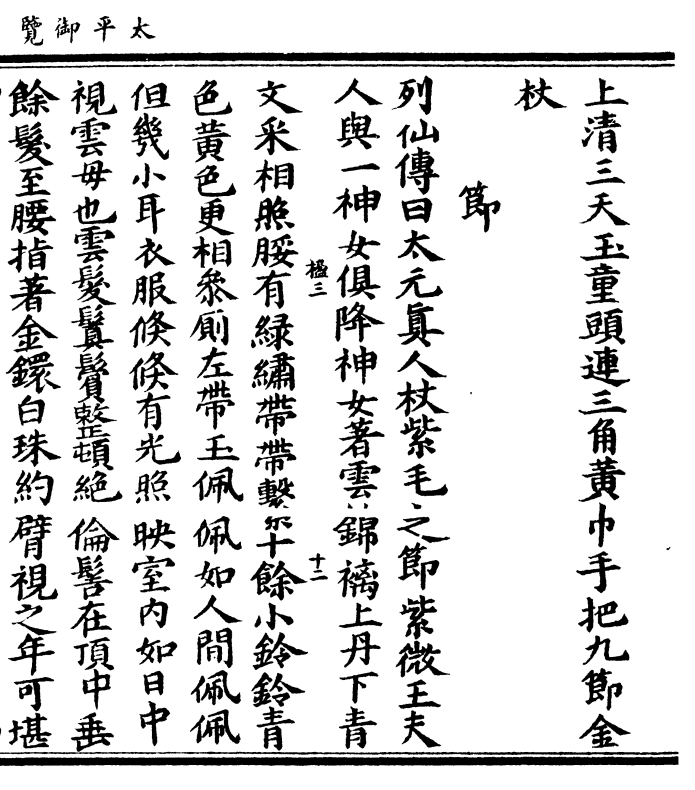 太平御覽
上清三天玉童頭連三角黃巾手把九節金
杖
節
列仙傳曰太元眞人杖紫毛之節紫微王夫
人與一神女俱降神女著雲錦襹上丹下青
楹三
十二
文采相照腰有緑繡帶帶繫十餘小鈴鈴青
色黃色更相叅厠左帶玉佩佩如人間佩佩
但幾小耳衣服倏倏有光照映室内如日中
視雲母也雲髮鬒鬢整頓絶倫髻在頂中垂
餘髮至腰指著金鐶白珠約臂視之年可堪